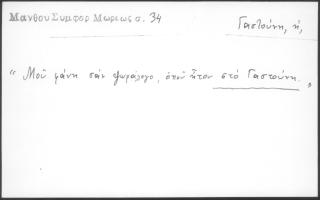 Μανθου Συμφορ Μωρεως σ. 34
Γαστούνη, ἡ,
“ Μοῦ φάνη σάν , ὁποῦ ἦτον στό Γαστούνη. „